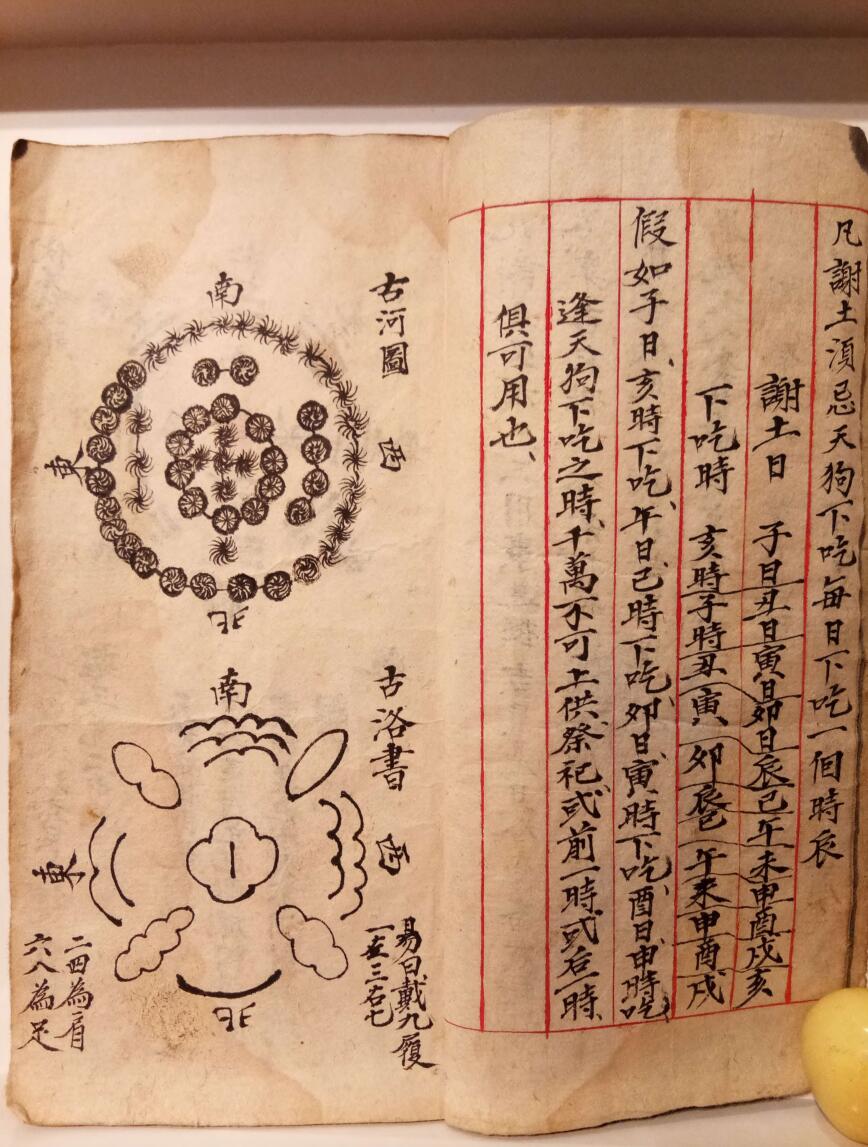 凡謝土須忌天狗下吃每日下吃一個時辰
謝土日 子日丑日寅日卯日辰巳午未申酉戌亥
下吃時 亥時子時丑寅卯辰巳午未申酉戌
假如子日、亥時下吃、午日巳時下吃、卯日寅時下吃、酉日申時吃
逢天狗下吃之時、千萬不可上供祭祀或前一時或后一時
俱可用也、
古河圖
南
西
東
北
古洛書
南
西
東
北
易曰戴九履
一左三右七
二四為肩
六八為足